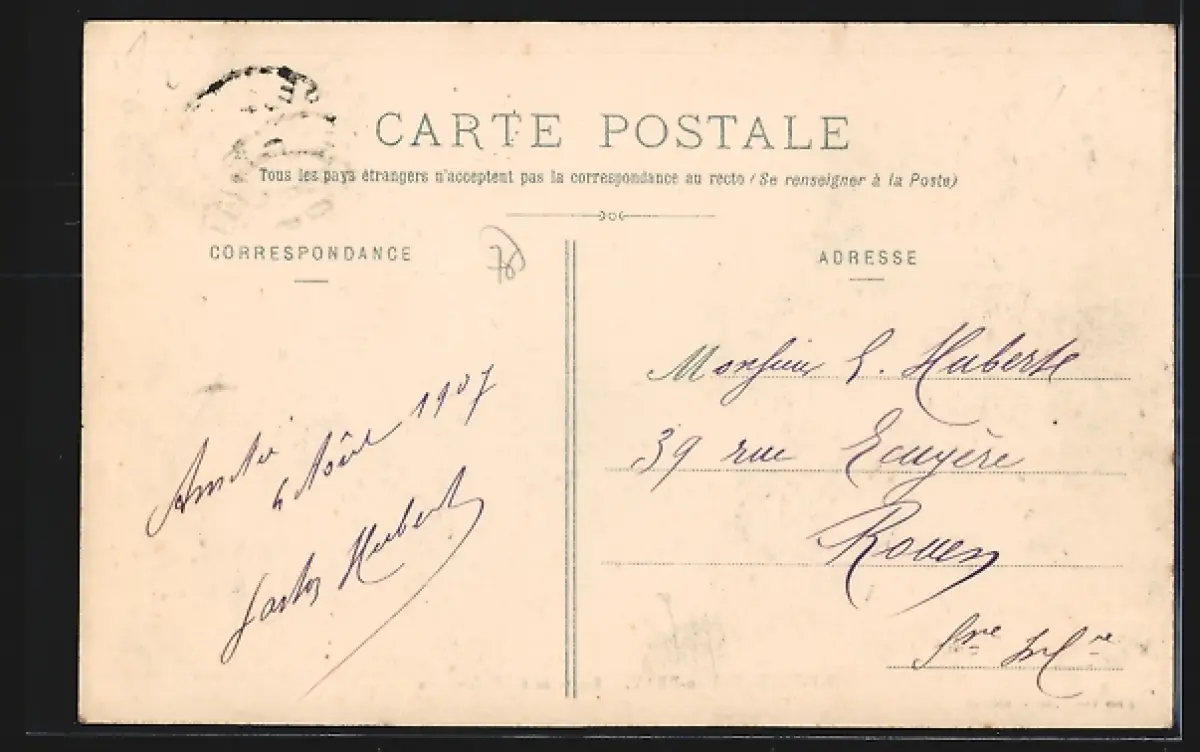 CARTE POSTALE
Tous les pays étrangers n'acceptent pas la correspondance au recto (Se renseigner à la Poste)
CORRESPONDANCE
ADRESSE
Amitié
4 Août 1907
Hubert
Monsieur G. Huberte
39 rue Ecuyère
Rouen
Sre Infre